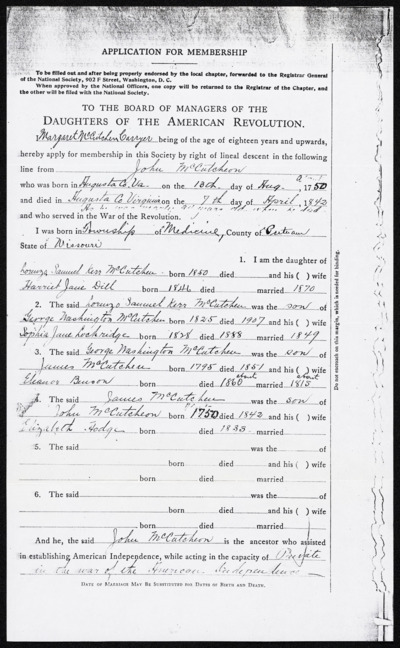 APPLICATION FOR MEMBERSHIP
To be filled out and after being properly endorsed by the local chapter, forwarded to the Registrar General
of the National Society, 902 F Street, Washington, D. C.
When approved by the National Officers, one copy will be returned to the Registrar of the Chapter, and
the other will be filed with the National Society.
TO THE BOARD OF MANAGERS OF THE
DAUGHTERS OF THE AMERICAN REVOLUTION.
Margaret McCutchen being of the age of eighteen years and upwards,
hereby apply for membership in this Society by right of lineal descent in the following
line from John McCutcheon
who was born in Augusta Co. Va. on the day of Aug. , 1750
and died in Augusta Co Virginia on the 9th day of April, 1842
and who served in the War of the Revolution.
I was born in Township of Medicine, County of Putnam
State of Missouri
1. I am the daughter of
Lorenzo Samuel Kerr McCutchen born 1850 died and his ( ) wife
Harriet Jane Dill born died married 1870
2. The said Lorenzo Samuel Kerr McCutchen was the son of
George Washington McCutchen born 1825 died 1907 and his ( ) wife
Sophia Jane Lockridge born 1828 died 1888 married 1849
3. The said George Washington McCutchen was the son of
James McCutchen born 1795 died 1851 and his ( ) wife
about about
Eleanor born died 1860 married 1815
4. The said James McCutchen was the son of
John McCutcheon born 1750 died 1842 and his ( ) wife
Elizabeth Hodge born died 1833 married
5. The said was the of
born died and his ( ) wife
born died married
6. The said was the of
born died and his ( ) wife
born died married
And he, the said John McCutcheon is the ancestor who assisted
in establishing American Independence, while acting in the capacity of Private
in the war of the American Independence
DATE OF MARRIAGE MAY BE SUBSTITUTED FOR DATES OF BIRTH AND DEATH.
Do not encroach on this margin, which is needed for binding.